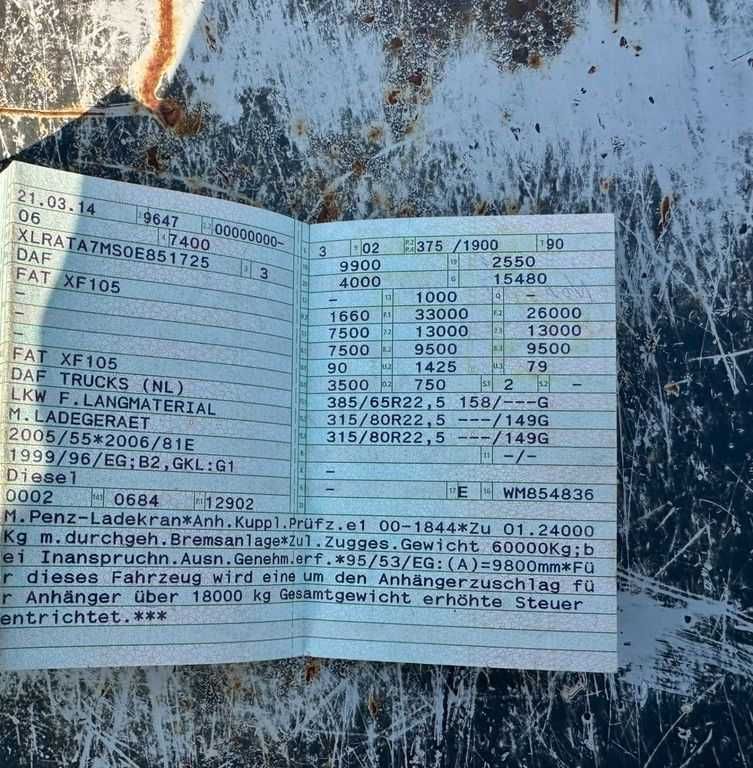 21.03.14 9647 00000000-
06 7400
XLRATA7MS0E851725 3
DAF
FAT XF105
-
-
-
FAT XF105
DAF TRUCKS (NL)
LKW F.LANGMATERIAL
M.LADEGERAET
2005/55*2006/81E
1999/96/EG;B2,GKL:G1
Diesel
0002 0684 12902
3 02 375 /1900 90
9900 2550
4000 15480
- 1000 -
1660 33000 26000
7500 13000 13000
7500 9500 9500
90 1425 79
3500 750 2 -
385/65R22,5 158/---G
315/80R22,5 ---/149G
315/80R22,5 ---/149G
-/-
-
- E WM854836
M.Penz-Ladekran*Anh.Kuppl.Prüfz.e1 00-1844*Zu 01.24000
Kg m.durchgeh.Bremsanlage*Zul.Zugges.Gewicht 60000Kg;b
ei Inanspruchn.Ausn.Genehm.erf.*95/53/EG:(A)=9800mm*Fü
r dieses Fahrzeug wird eine um den Anhängerzuschlag fü
r Anhänger über 18000 kg Gesamtgewicht erhöhte Steuer
entrichtet.***